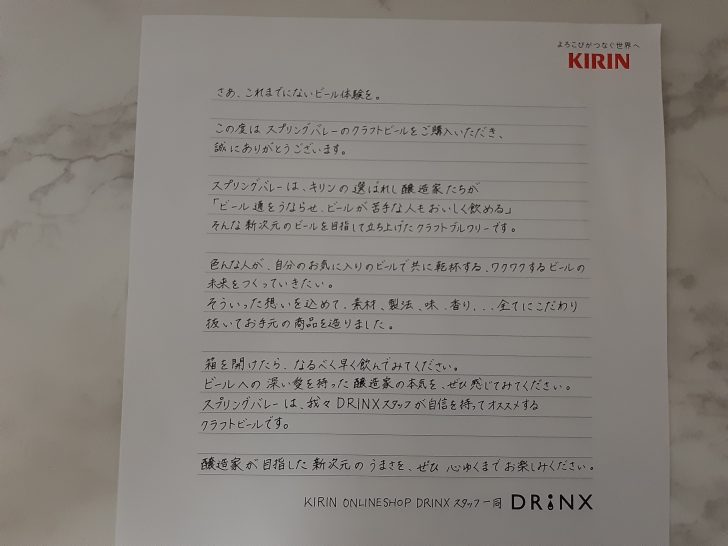 よろこびがつなぐ世界へ
KIRIN
さあ、これまでにないビール体験を。
この度は スプリングバレーのクラフトビールをご購入いただき、
誠にありがとうございます。
スプリングバレーは、キリンの選ばれし醸造家たちが
「ビール通をうならせ、ビールが苦手な人もおいしく飲める」
そんな新次元のビールを目指して立ち上げたクラフトブルワリーです。
色んな人が、自分のお気に入りのビールで共に乾杯する、ワクワクするビールの
未来をつくっていきたい。
そういった想いを込めて、素材、製法、味、香り、、、全てにこだわり
抜いてお手元の商品を造りました。
箱を開けたら、なるべく早く飲んでみてください。
ビールへの深い愛を持った醸造家の本気を、ぜひ感じてみてください。
スプリングバレーは、我々DRiNXスタッフが自信を持ってオススメする
クラフトビールです。
醸造家が目指した新次元のうまさを、ぜひ 心ゆくまでお楽しみください。
KIRIN ONLINESHOP DRINX スタッフ一同 DRiNX